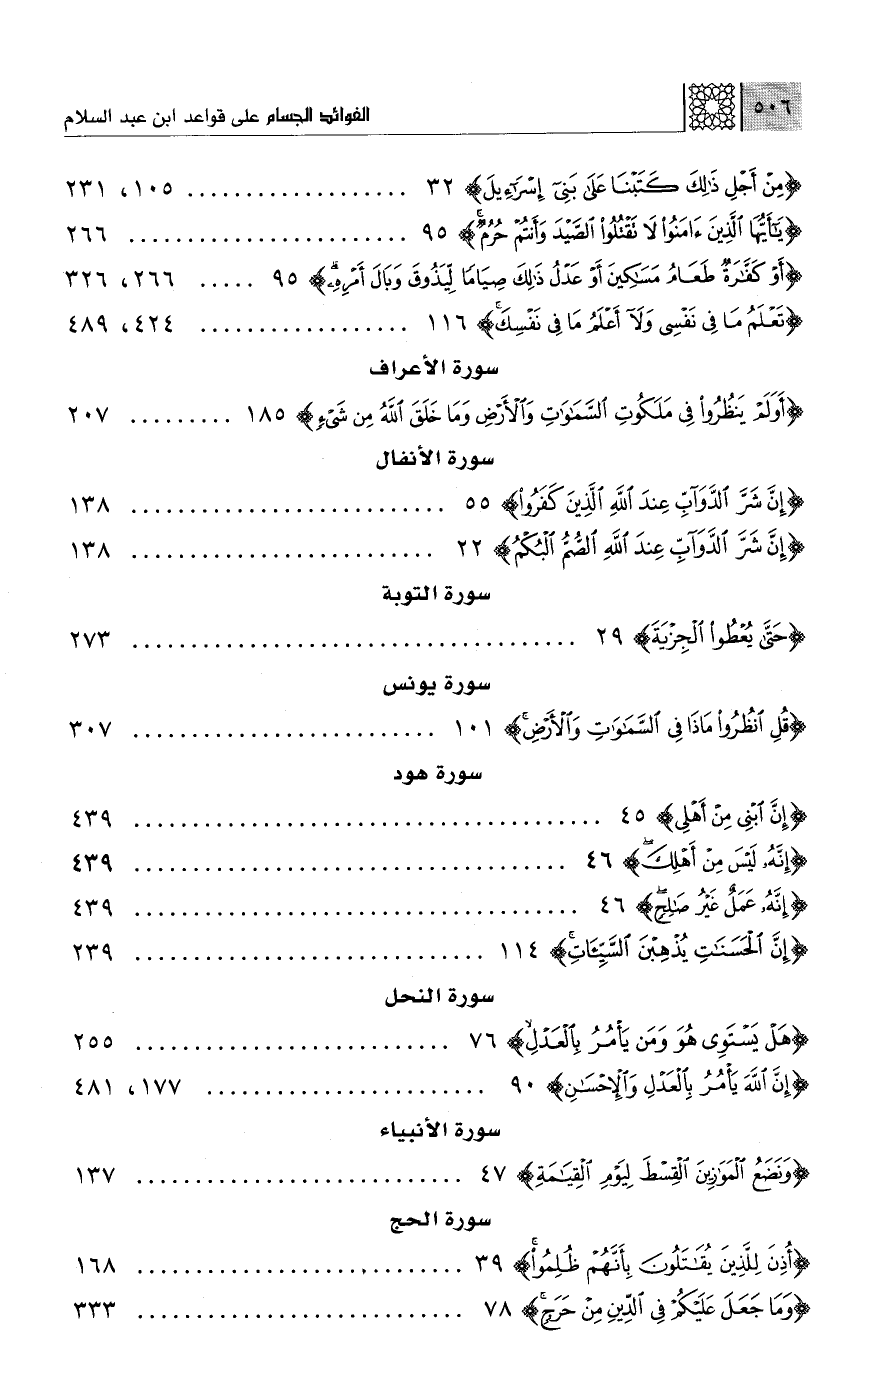 ٥٠٦ الفوائد الجسام على قواعد ابن عبد السلام
﴿مِنْ أَجْلِ ذَٰلِكَ كَتَبْنَا عَلَىٰ بَنِىٓ إِسْرَٰٓءِيلَ﴾ ٣٢ ................... ١٠٥، ٢٣١
﴿يَٰٓأَيُّهَا ٱلَّذِينَ ءَامَنُوا۟ لَا تَقْتُلُوا۟ ٱلصَّيْدَ وَأَنتُمْ حُرُمٌۚ﴾ ٩٥ ........................ ٢٦٦
﴿أَوْ كَفَّٰرَةٌ طَعَامُ مَسَٰكِينَ أَوْ عَدْلُ ذَٰلِكَ صِيَامًا لِّيَذُوقَ وَبَالَ أَمْرِهِۦۗ﴾ ٩٥ ..... ٢٦٦، ٣٢٦
﴿تَعْلَمُ مَا فِى نَفْسِى وَلَآ أَعْلَمُ مَا فِى نَفْسِكَۚ﴾ ١١٦ .................. ٤٢٤، ٤٨٩
سورة الأعراف
﴿أَوَلَمْ يَنظُرُوا۟ فِى مَلَكُوتِ ٱلسَّمَٰوَٰتِ وَٱلْأَرْضِ وَمَا خَلَقَ ٱللَّهُ مِن شَىْءٍ﴾ ١٨٥ ......... ٢٠٧
سورة الأنفال
﴿إِنَّ شَرَّ ٱلدَّوَآبِّ عِندَ ٱللَّهِ ٱلَّذِينَ كَفَرُوا۟﴾ ٥٥ ........................... ١٣٨
﴿إِنَّ شَرَّ ٱلدَّوَآبِّ عِندَ ٱللَّهِ ٱلصُّمُّ ٱلْبُكْمُ﴾ ٢٢ .......................... ١٣٨
سورة التوبة
﴿حَتَّىٰ يُعْطُوا۟ ٱلْجِزْيَةَ﴾ ٢٩ ...................................... ٢٧٣
سورة يونس
﴿قُلِ ٱنظُرُوا۟ مَاذَا فِى ٱلسَّمَٰوَٰتِ وَٱلْأَرْضِۚ﴾ ١٠١ .......................... ٣٠٧
سورة هود
﴿إِنَّ ٱبْنِى مِنْ أَهْلِى﴾ ٤٥ ........................................ ٤٣٩
﴿إِنَّهُۥ لَيْسَ مِنْ أَهْلِكَۖ﴾ ٤٦ ..................................... ٤٣٩
﴿إِنَّهُۥ عَمَلٌ غَيْرُ صَٰلِحٍۖ﴾ ٤٦ ...................................... ٤٣٩
﴿إِنَّ ٱلْحَسَنَٰتِ يُذْهِبْنَ ٱلسَّيِّـَٔاتِۚ﴾ ١١٤ .............................. ٢٣٩
سورة النحل
﴿هَلْ يَسْتَوِى هُوَ وَمَن يَأْمُرُ بِٱلْعَدْلِۙ﴾ ٧٦ ........................... ٢٥٥
﴿إِنَّ ٱللَّهَ يَأْمُرُ بِٱلْعَدْلِ وَٱلْإِحْسَٰنِ﴾ ٩٠ ........................ ١٧٧، ٤٨١
سورة الأنبياء
﴿وَنَضَعُ ٱلْمَوَٰزِينَ ٱلْقِسْطَ لِيَوْمِ ٱلْقِيَٰمَةِ﴾ ٤٧ ............................ ١٣٧
سورة الحج
﴿أُذِنَ لِلَّذِينَ يُقَٰتَلُونَ بِأَنَّهُمْ ظُلِمُوا۟ۚ﴾ ٣٩ ............................ ١٦٨
﴿وَمَا جَعَلَ عَلَيْكُمْ فِى ٱلدِّينِ مِنْ حَرَجٍۚ﴾ ٧٨ ............................ ٣٣٣